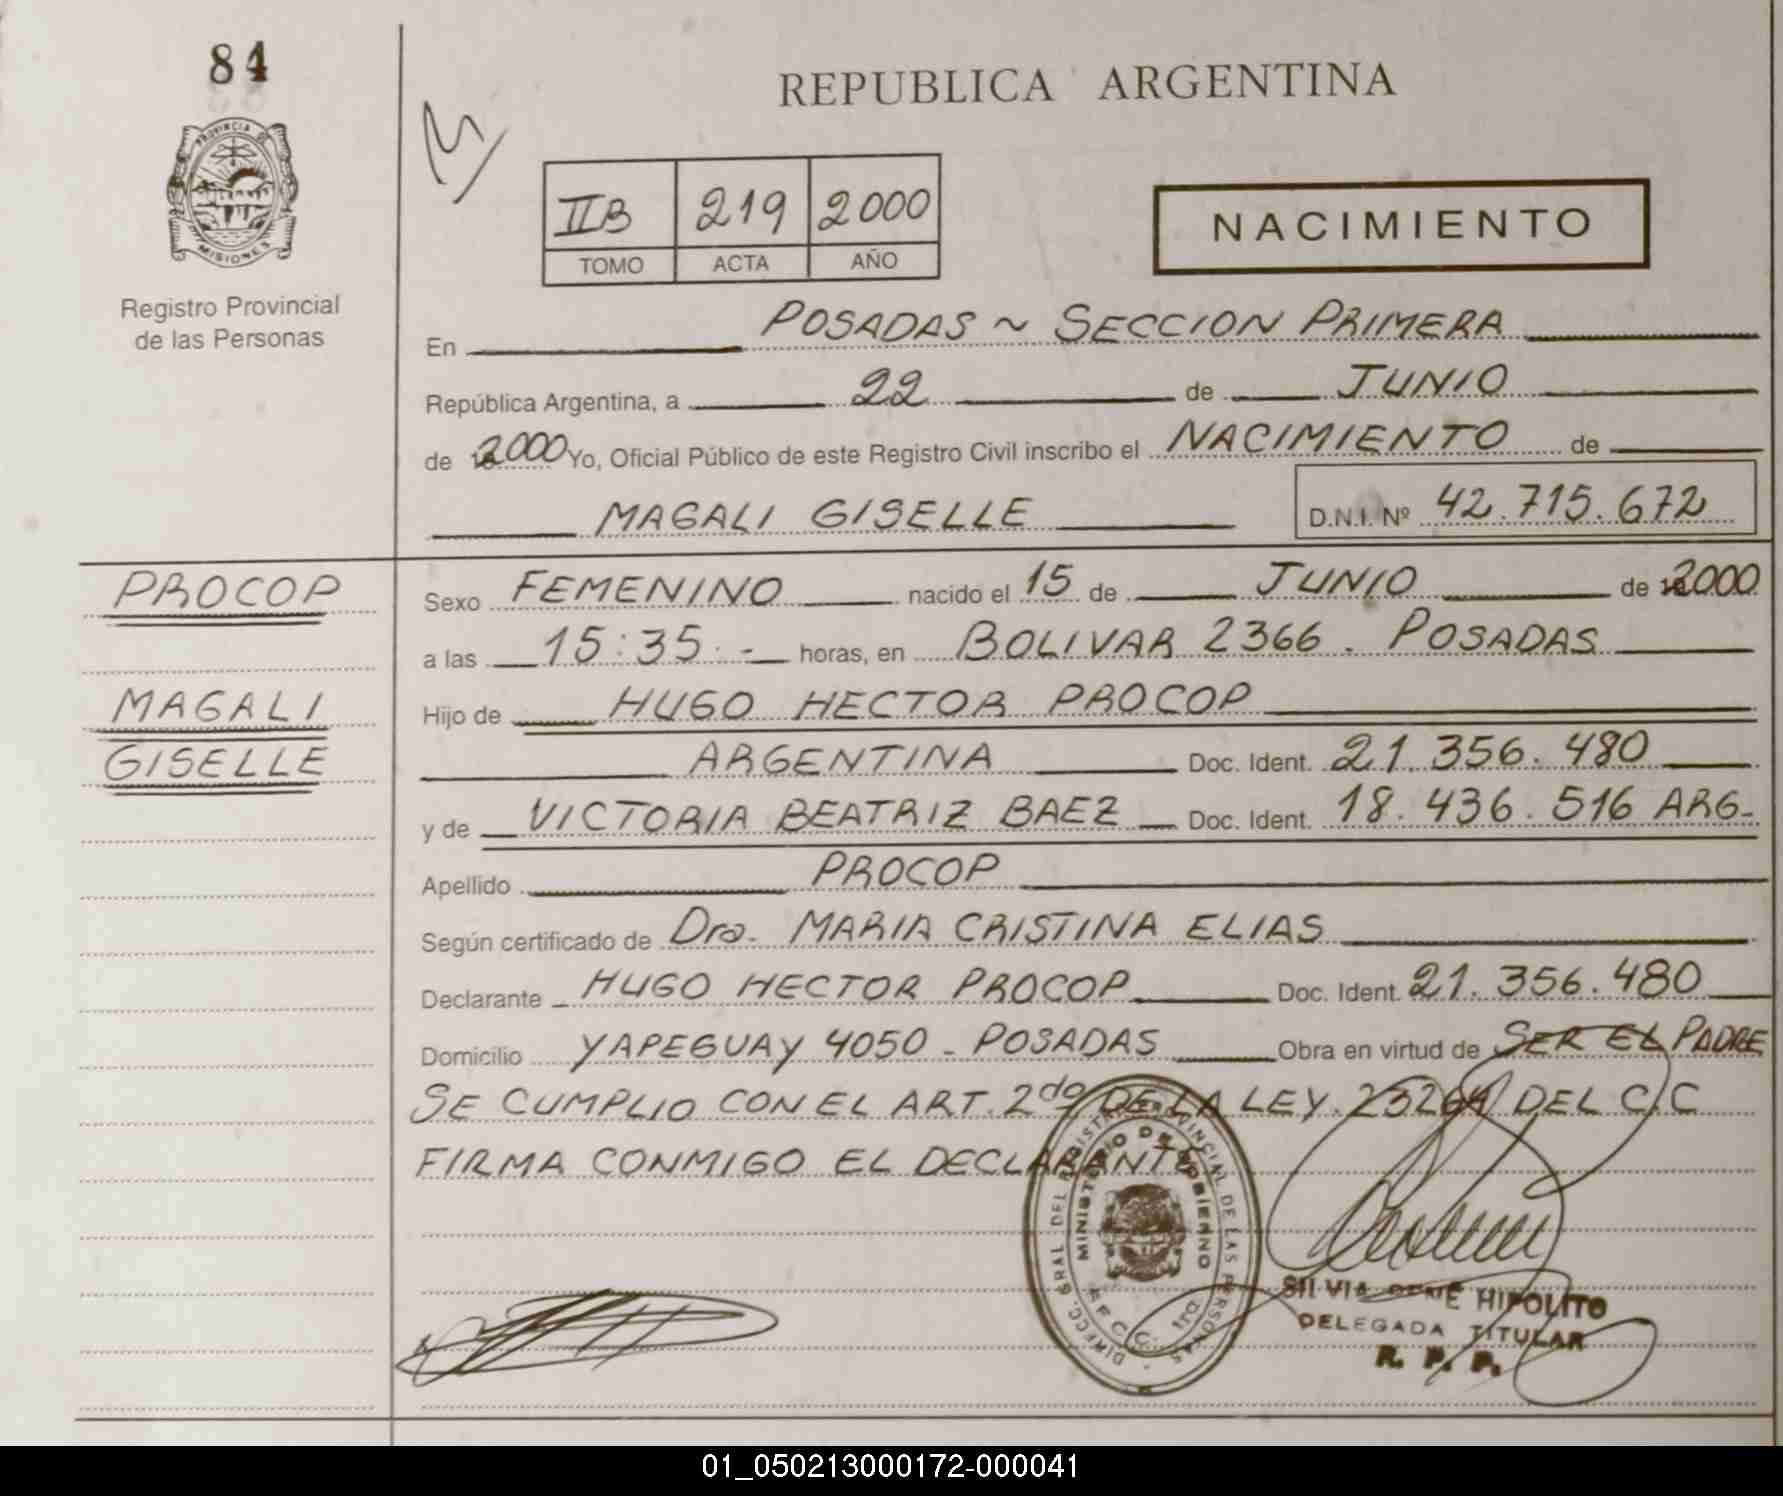 84
REPUBLICA ARGENTINA
PROVINCIA DE
MISIONES
Registro Provincial
de las Personas
IIB 219 2000
TOMO ACTA AÑO
NACIMIENTO
En POSADAS ~ SECCION PRIMERA
República Argentina, a 22 de JUNIO
de 2000 Yo, Oficial Público de este Registro Civil inscribo el NACIMIENTO de
MAGALI GISELLE D.N.I. Nº 42.715.672
PROCOP
MAGALI
GISELLE
Sexo FEMENINO nacido el 15 de JUNIO de 2000
a las 15:35.- horas, en BOLIVAR 2366. POSADAS
Hijo de HUGO HECTOR PROCOP
ARGENTINA Doc. Ident. 21.356.480
y de VICTORIA BEATRIZ BAEZ Doc. Ident. 18.436.516 ARG-
Apellido PROCOP
Según certificado de Dra. MARIA CRISTINA ELIAS
Declarante HUGO HECTOR PROCOP Doc. Ident. 21.356.480
Domicilio YAPEGUAY 4050 - POSADAS Obra en virtud de SER EL PADRE
SE CUMPLIO CON EL ART. 2do DE LA LEY. 23264 DEL C.C
FIRMA CONMIGO EL DECLARANTE
DIRECC. GRAL DEL REGISTRO PROVINCIAL DE LAS PERSONAS
MINISTERIO DE GOBIERNO
SILVIA RENE HIPOLITO
DELEGADA TITULAR
R. P. P.
01_050213000172-000041